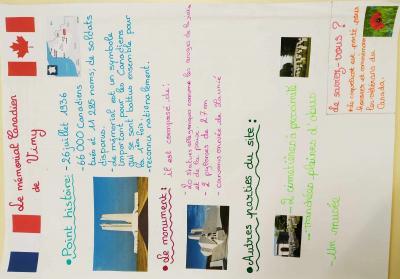 Le mémorial Canadien
de Vimy
• Point histoire : - 26 juillet 1936
- 66 000 Canadiens
tués et 11 285 noms, de soldats
disparus.
- Le mémorial est un symbole
important pour les Canadiens
qui se sont battus ensemble pour
la 1ère fois.
- reconnu nationalement.
• Le monument :
il est composé de :
- 20 statues allégoriques comme les anges de la justice
et de la paix
- 2 pylônes de 27 m
- canadiens
• Autres parties du site :
- 2 cimetières à proximité
- tranchées pleines d'obus
- Un musée
Le saviez-vous ?
Le coquelicot est porté pour
honorer et commémorer
les vétérans du
Canada.